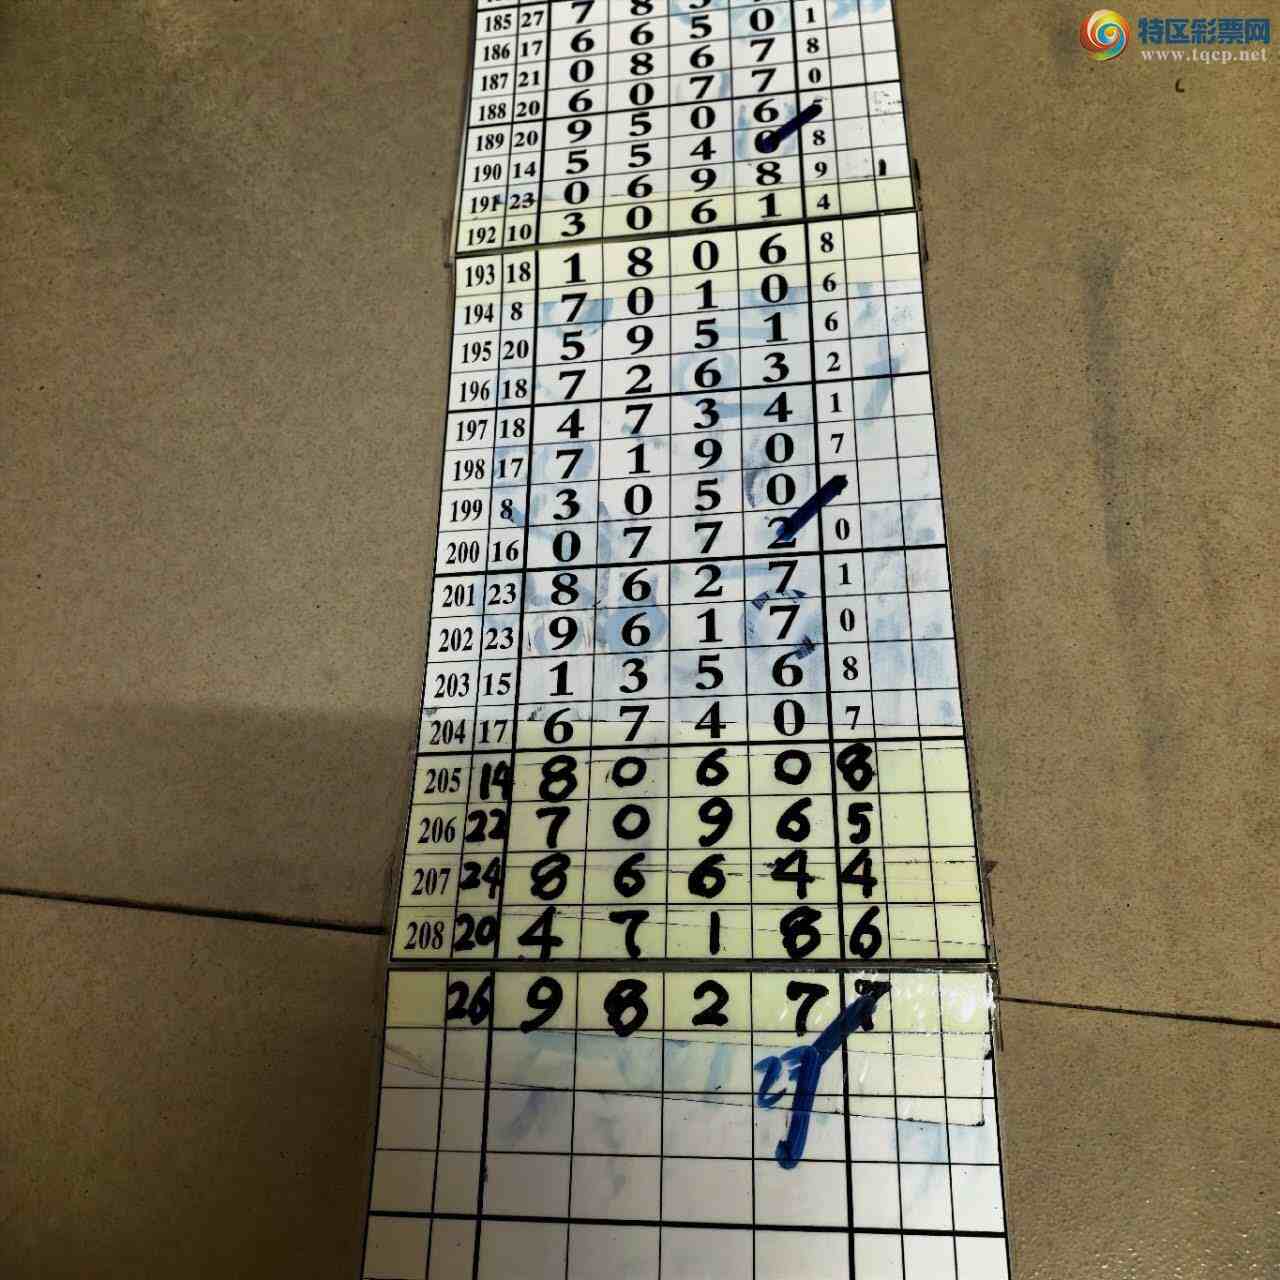 特区彩票网
www.tqcp.net
185 27 7 8 1
186 17 6 6 5 0 8
187 21 0 8 6 7 0
188 20 6 0 7 7
189 20 9 5 0 6 8
190 14 5 5 4 0 9
191 23 0 6 9 8 4
192 10 3 0 6 1
193 18 1 8 0 6 8
194 8 7 0 1 0 6
195 20 5 9 5 1 6
196 18 7 2 6 3 2
197 18 4 7 3 4 1
198 17 7 1 9 0 7
199 8 3 0 5 0
200 16 0 7 7 2 0
201 23 8 6 2 7 1
202 23 9 6 1 7 0
203 15 1 3 5 6 8
204 17 6 7 4 0 7
205 14 8 0 6 0 8
206 22 7 0 9 6 5
207 24 8 6 6 4 4
208 20 4 7 1 8 6
26 9 8 2 7 7
27